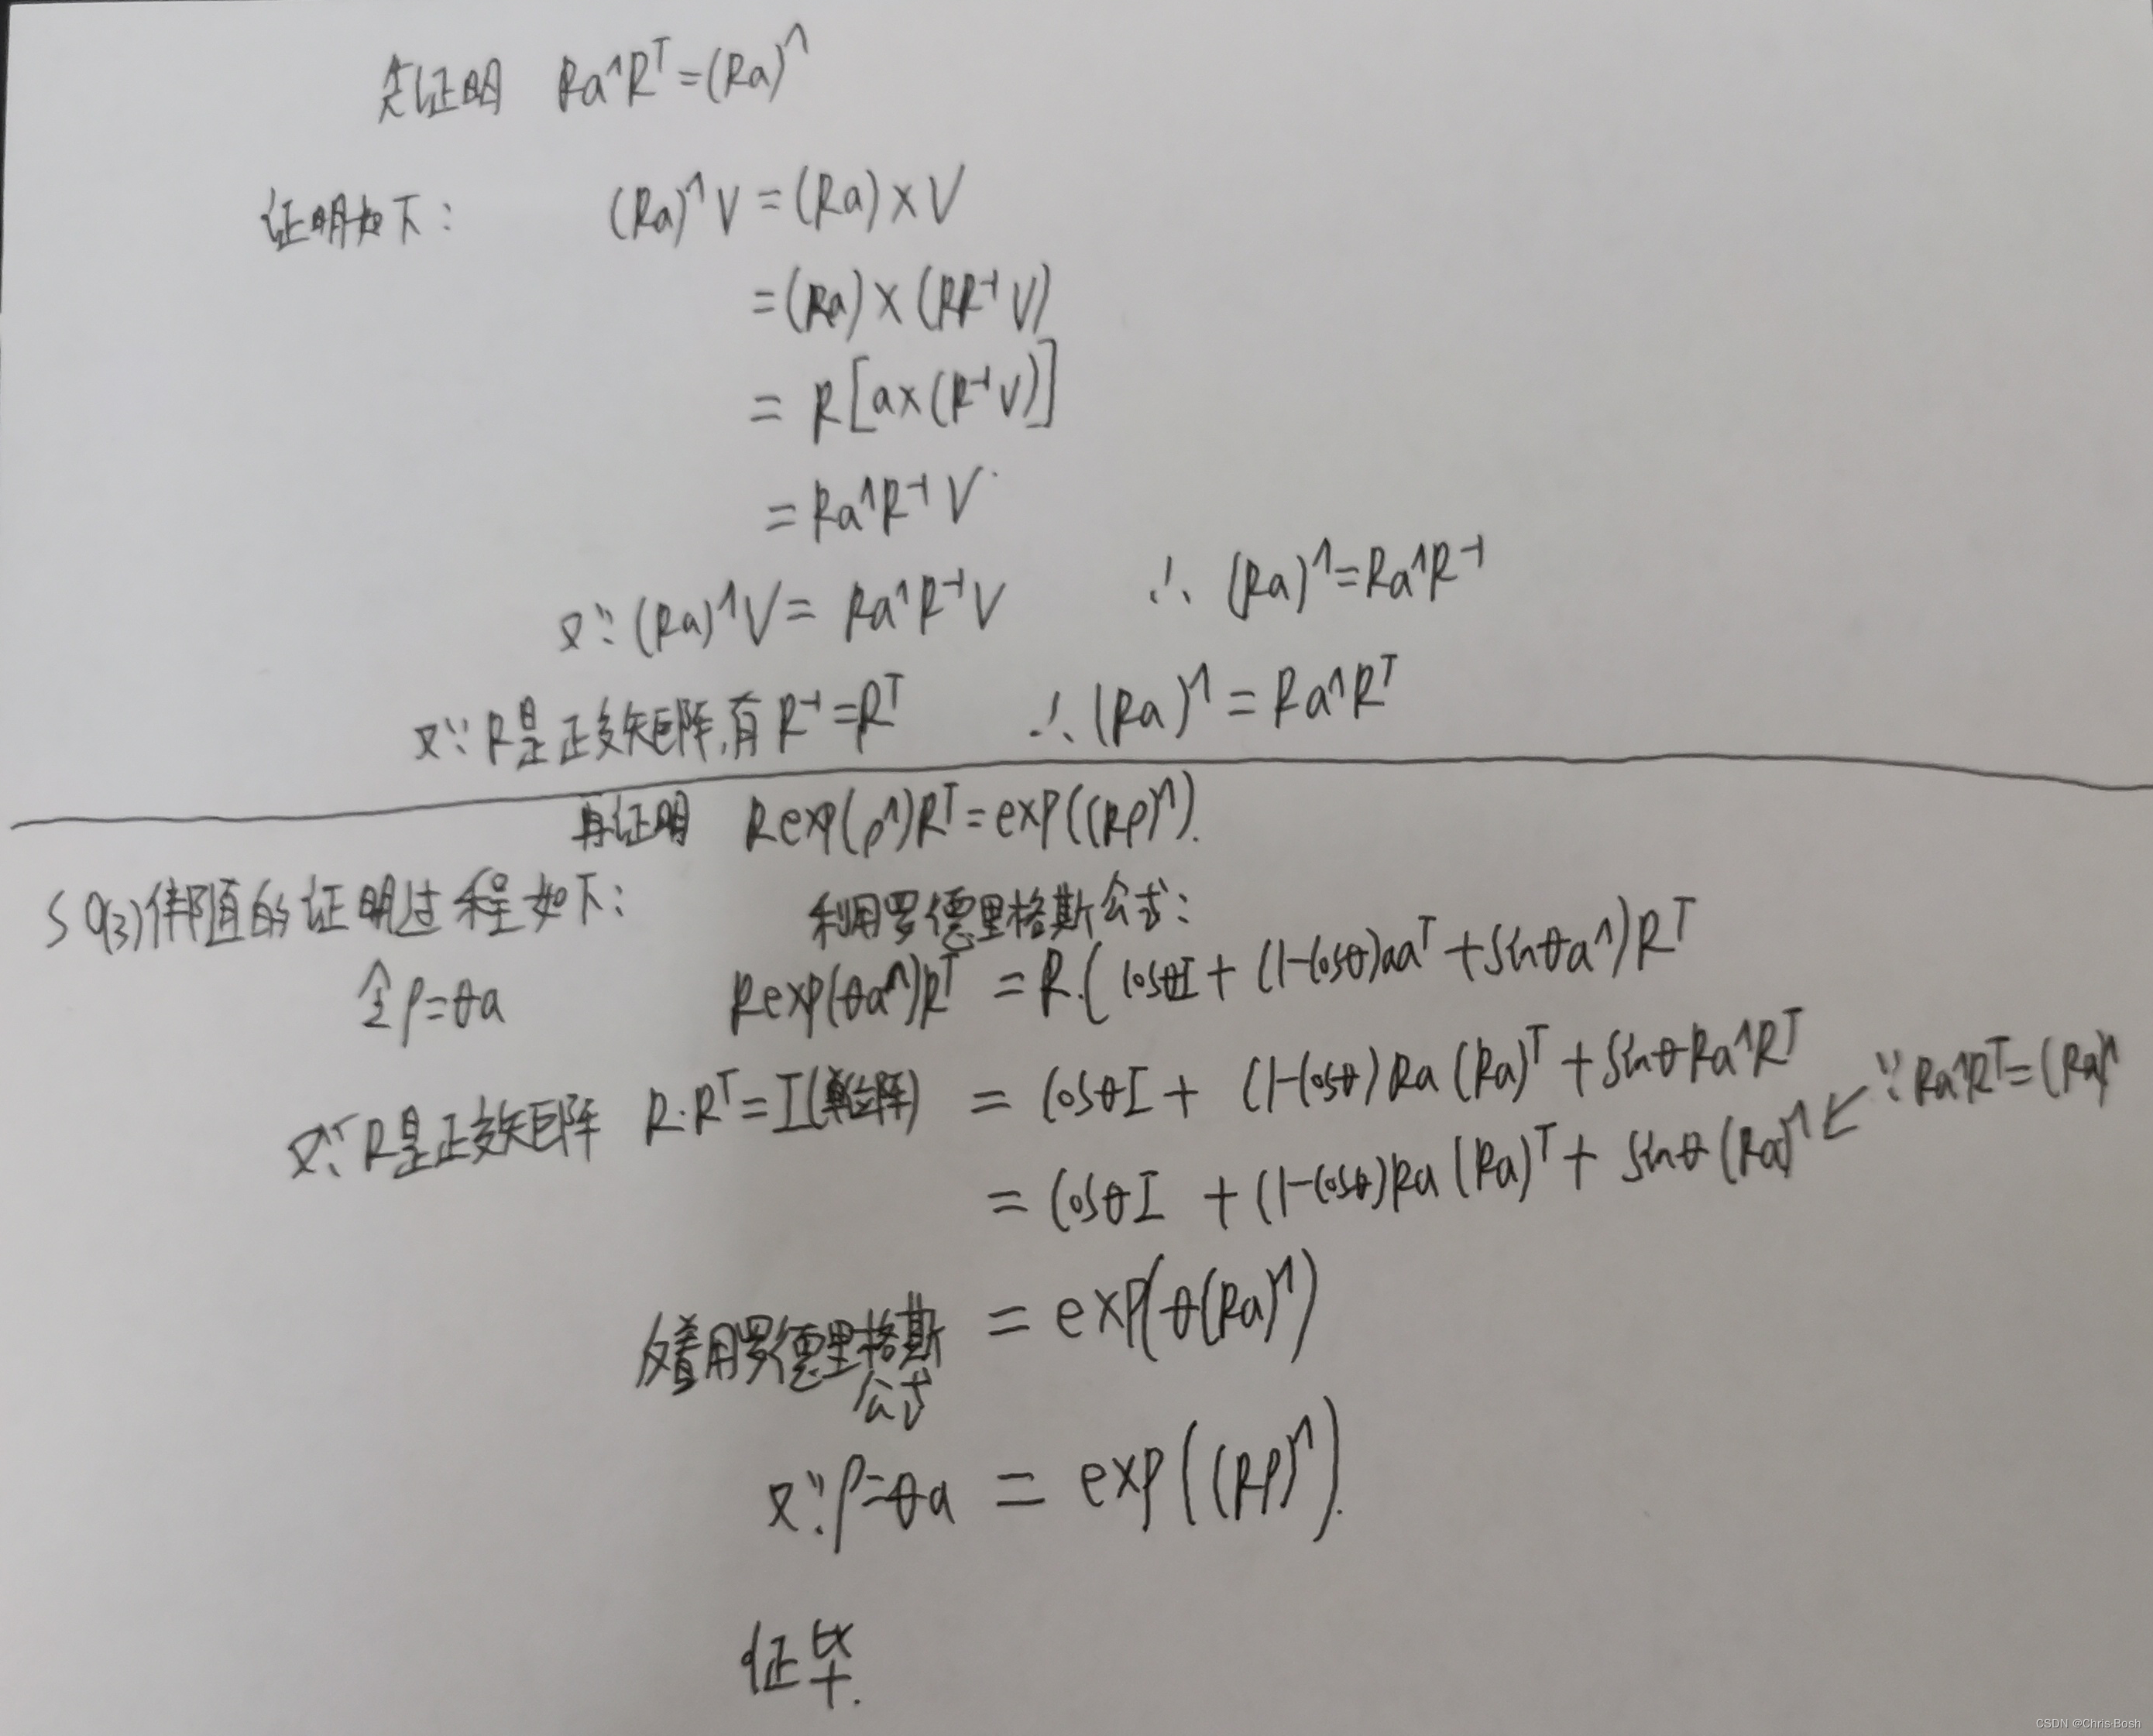 先证明 Ra^R^T=(Ra)^
证明如下： (Ra)^V=(Ra)×V
=(Ra)×(RR⁻¹V)
=R[a×(R⁻¹V)]
=Ra^R⁻¹V
又∵(Ra)^V=Ra^R⁻¹V ∴(Ra)^=Ra^R⁻¹
又∵R是正交矩阵,有R⁻¹=Rᵀ ∴(Ra)^=Ra^Rᵀ
再证明 Rexp(ρ^)Rᵀ=exp((Rρ)^).
SO(3)伴随的证明过程如下： 利用罗德里格斯公式：
令ρ=θa Rexp(θa^)Rᵀ=R.(cosθI+(1-cosθ)aaᵀ+sinθa^)Rᵀ
又∵R是正交矩阵 R·Rᵀ=I(单位阵) =cosθI+(1-cosθ)Ra(Ra)ᵀ+sinθRa^Rᵀ ∵Ra^Rᵀ=(Ra)^
=cosθI+(1-cosθ)Ra(Ra)ᵀ+sinθ(Ra)^
反着用罗德里格斯公式 =exp(θ(Ra)^)
又∵ρ=θa =exp((Rρ)^).
证毕.
CSDN @Chris·Bosh